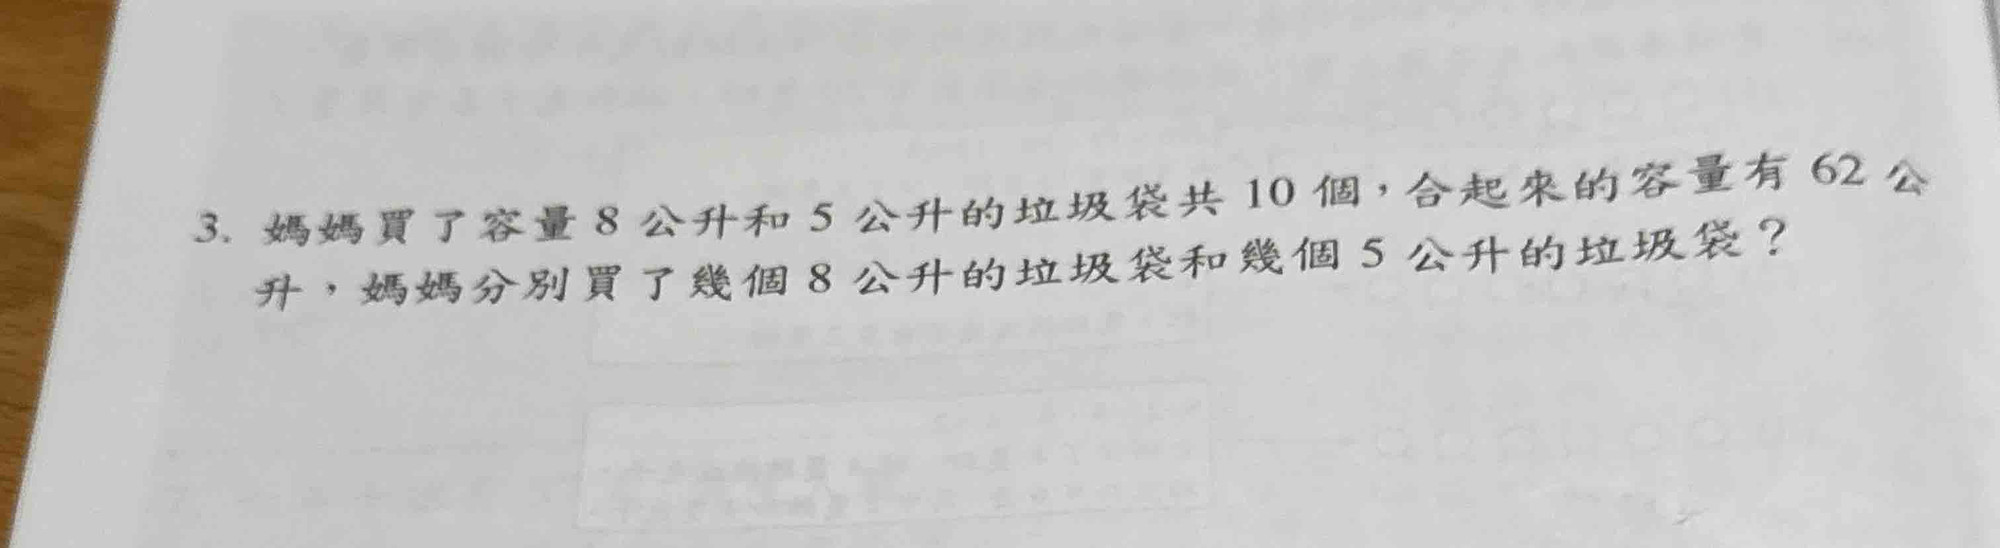 3. 媽媽買了容量 8 公升和 5 公升的垃圾袋共 10 個，合起來的容量有 62 公
升，媽媽分別買了幾個 8 公升的垃圾袋和幾個 5 公升的垃圾袋？